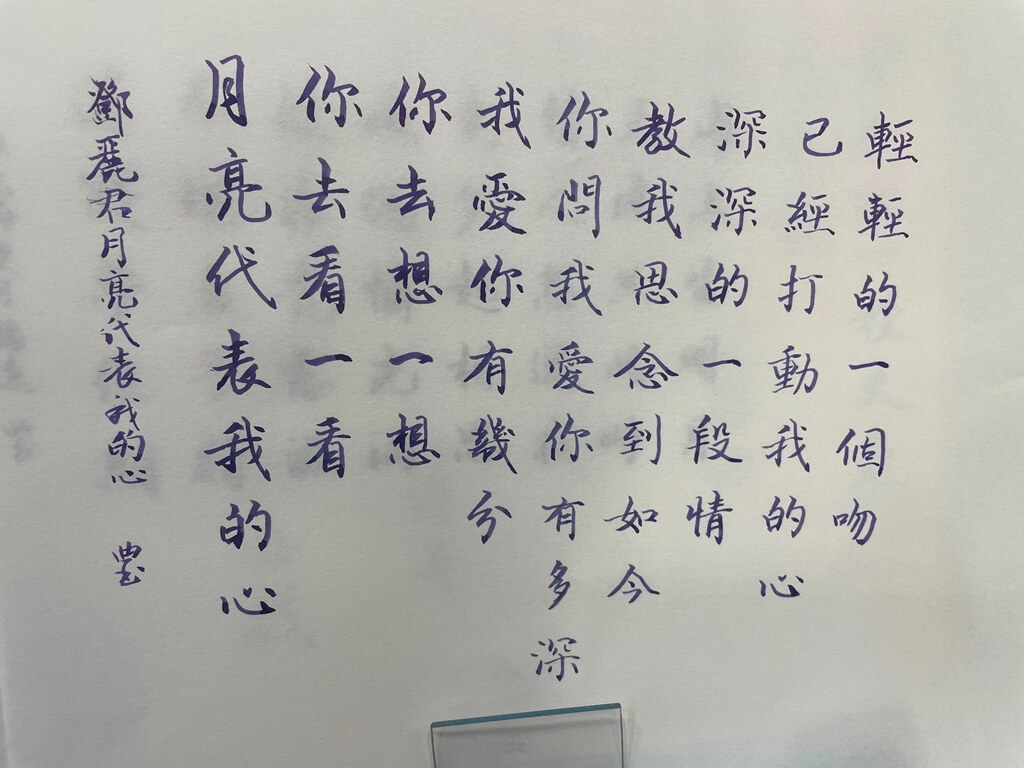 輕輕的一個吻
已經打動我的心
深深的一段情
教我思念到如今
你問我愛你有多深
我愛你有幾分
你去想一想
你去看一看
月亮代表我的心
鄧麗君月亮代表我的心 豊